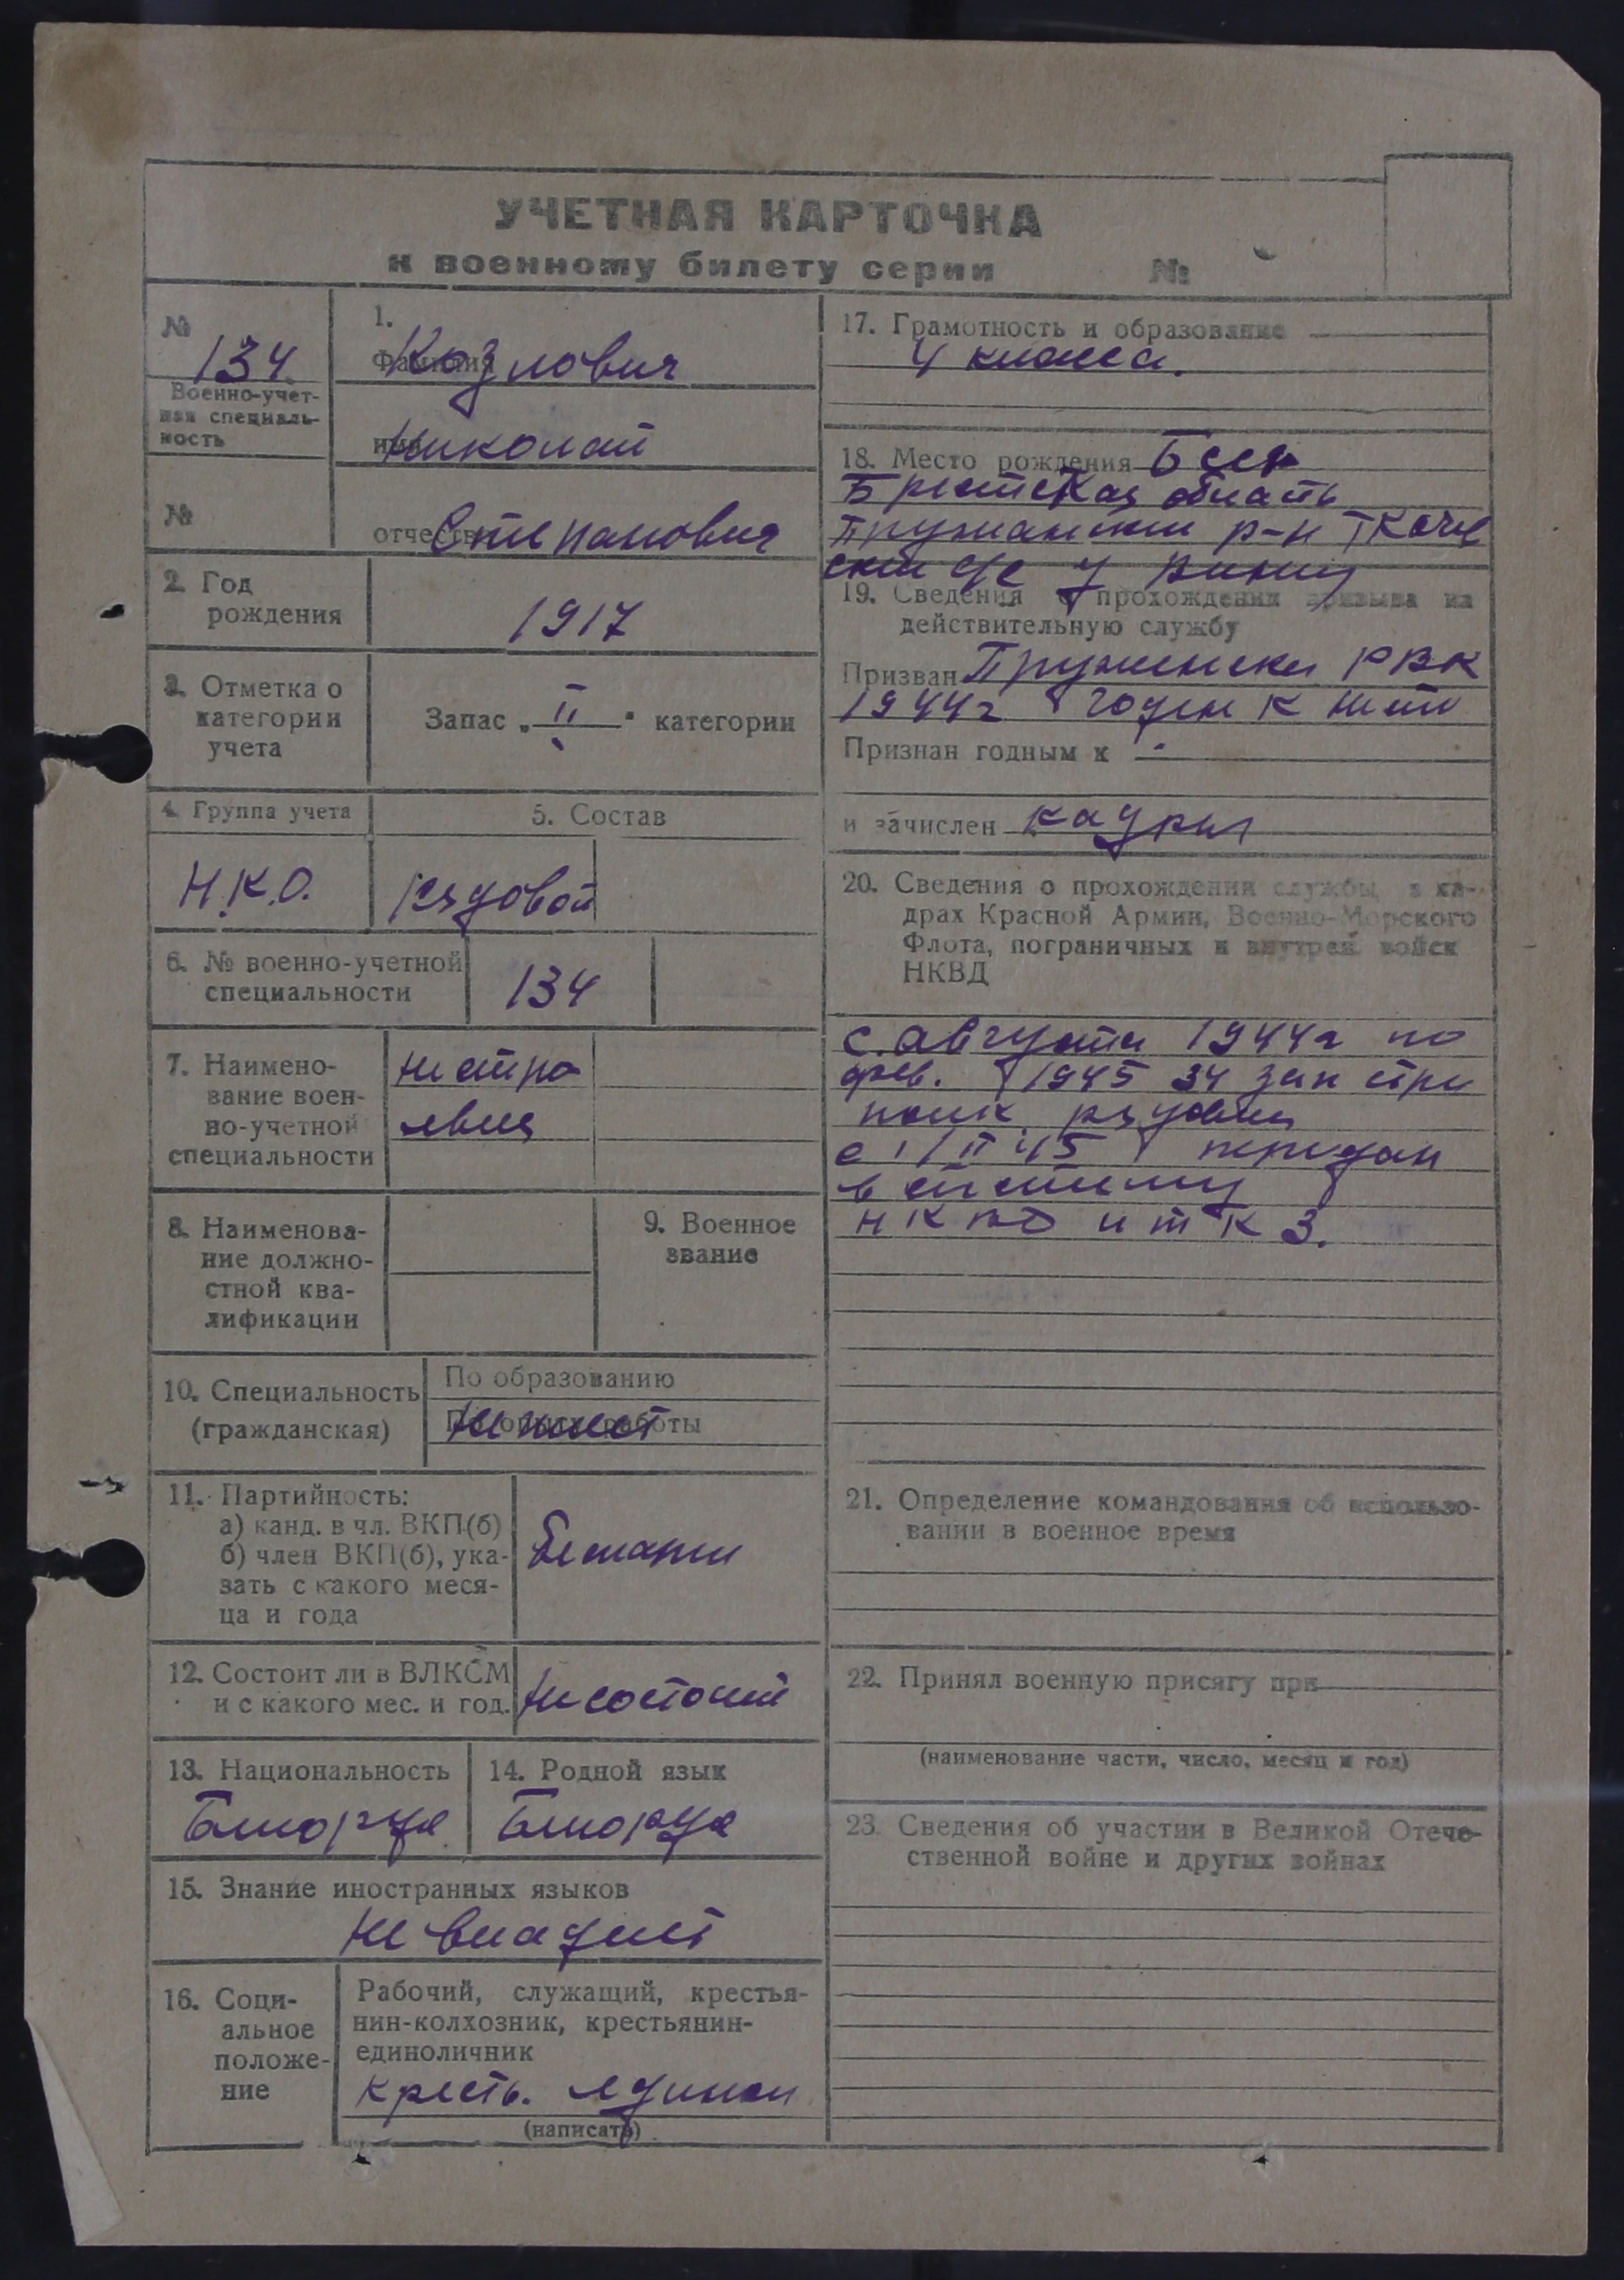 УЧЕТНАЯ КАРТОЧКА
к военному билету серии №
№
134
Военно-учет-
ная специаль-
ность
№
1.
Фамилия Козлович
имя Николай
отчество Степанович
2. Год
рождения
1917
3. Отметка о
категории
учета
Запас „II" категории
4. Группа учета
Н.К.О.
5. Состав
Рядовой
6. № военно-учетной
специальности
134
7. Наимено-
вание воен-
но-учетной
специальности
8. Наименова-
ние должно-
стной ква-
лификации
9. Военное
звание
10. Специальность
(гражданская)
По образованию
По опыту работы
11. Партийность:
а) канд. в чл. ВКП(б)
б) член ВКП(б), ука-
зать с какого меся-
ца и года
12. Состоит ли в ВЛКСМ
и с какого мес. и год.
Не состоит
13. Национальность
14. Родной язык
15. Знание иностранных языков
Не владеет
16. Соци-
альное
положе-
ние
Рабочий, служащий, крестья-
нин-колхозник, крестьянин-
единоличник
Кресть. единол
(написать)
17. Грамотность и образование
4 класса.
18. Место рождения Бсср
Брестская область
Пружанский р-н
19. Сведения о прохождении призыва на
действительную службу
Призван РВК
1944г годен к
Признан годным к
и зачислен кадры
20. Сведения о прохождении службы в ка-
драх Красной Армии, Военно-Морского
Флота, пограничных и внутрен. войск
НКВД
с. августа 1944г по
фев. 1945 34 зап стр
полк рядовой
с 1/II 45 передан
в систему
21. Определение командования об использо-
вании в военное время
22. Принял военную присягу при
(наименование части, число, месяц и год)
23. Сведения об участии в Великой Отече-
ственной войне и других войнах